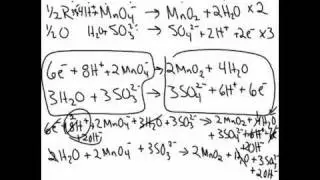 ½ R 4H⁺ MnO₄⁻ → MnO₂ + 2H₂O ×2
½ O H₂O + SO₃²⁻ → SO₄²⁻ + 2H⁺ + 2e⁻ ×3
6e⁻ + 8H⁺ + 2MnO₄⁻ → 2MnO₂ + 4H₂O
3H₂O + 3SO₃²⁻ → 3SO₄²⁻ + 6H⁺ + 6e⁻
6e⁻ + 8H⁺ + 2MnO₄⁻ + 3H₂O + 3SO₃²⁻ → 2MnO₂ + 4H₂O
+2OH⁻ +3SO₄²⁻ + 6H⁺ +2OH⁻
2H₂O + 2MnO₄⁻ + 3SO₃²⁻ → 2MnO₂ + H₂O + 3SO₄²⁻
+2OH⁻